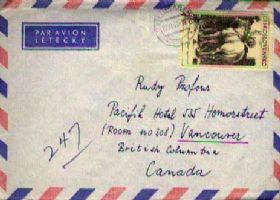 PAR AVION
LETECKY
Rudy
Pacific Hotel 535 Homerstreet
(Room no 308) Vancouver
British Columbia
Canada
247